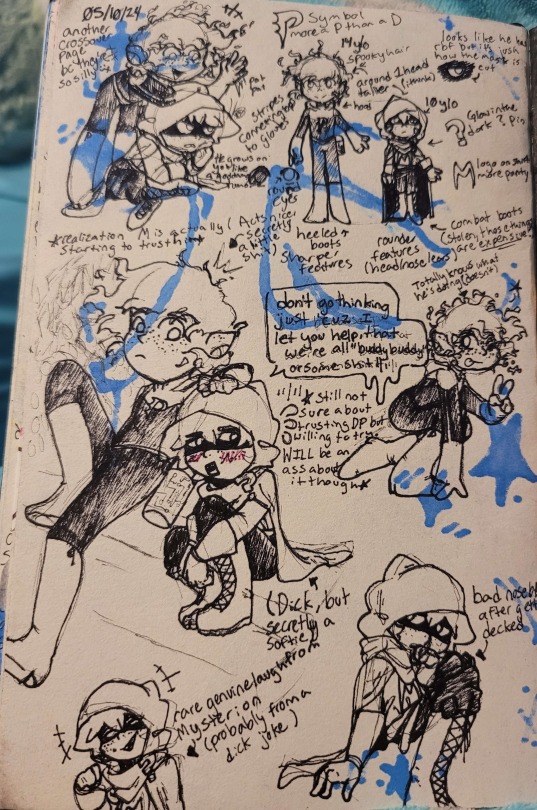 05/10/24
another
crossover
page
bc they're
so silly
Symbol
more P than a D
14 y/o
spooky hair
looks like he has
rbf but it's just
how the mask is
cut
pat
pat
stripes
connecting
to gloves
around 1 head
taller (i think)
10 y/o
Glow in the
dark ? pin
M
logo on
more pointy
*realization M is actually
starting to trust him
(Acts nice,
secretly
a little
shit)
heeled
boots
sharper
features
rounder
features
(head/nose/ears)
combat boots
(stolen, those things
are expensive)
Totally knows what
he's doing (doesn't)
don't go thinking
just 'cuz I
let you help, that
we're all "buddy buddy"
or some shit!!
*Still not
sure about
trusting DP but
willing to try
WILL be an
ass about
it though*
(Dick, but
secretly a
softie)
bad nosebleed
after getting
decked
rare genuine laugh from
Mysterion
(probably from a
dick joke)